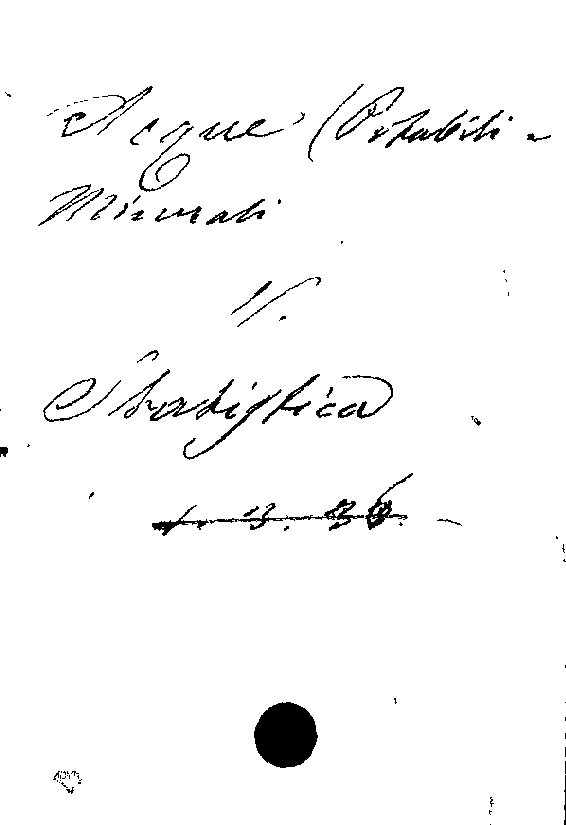 Acque (Potabili -
Minerali
V.
Statistica
1. 3. 36.